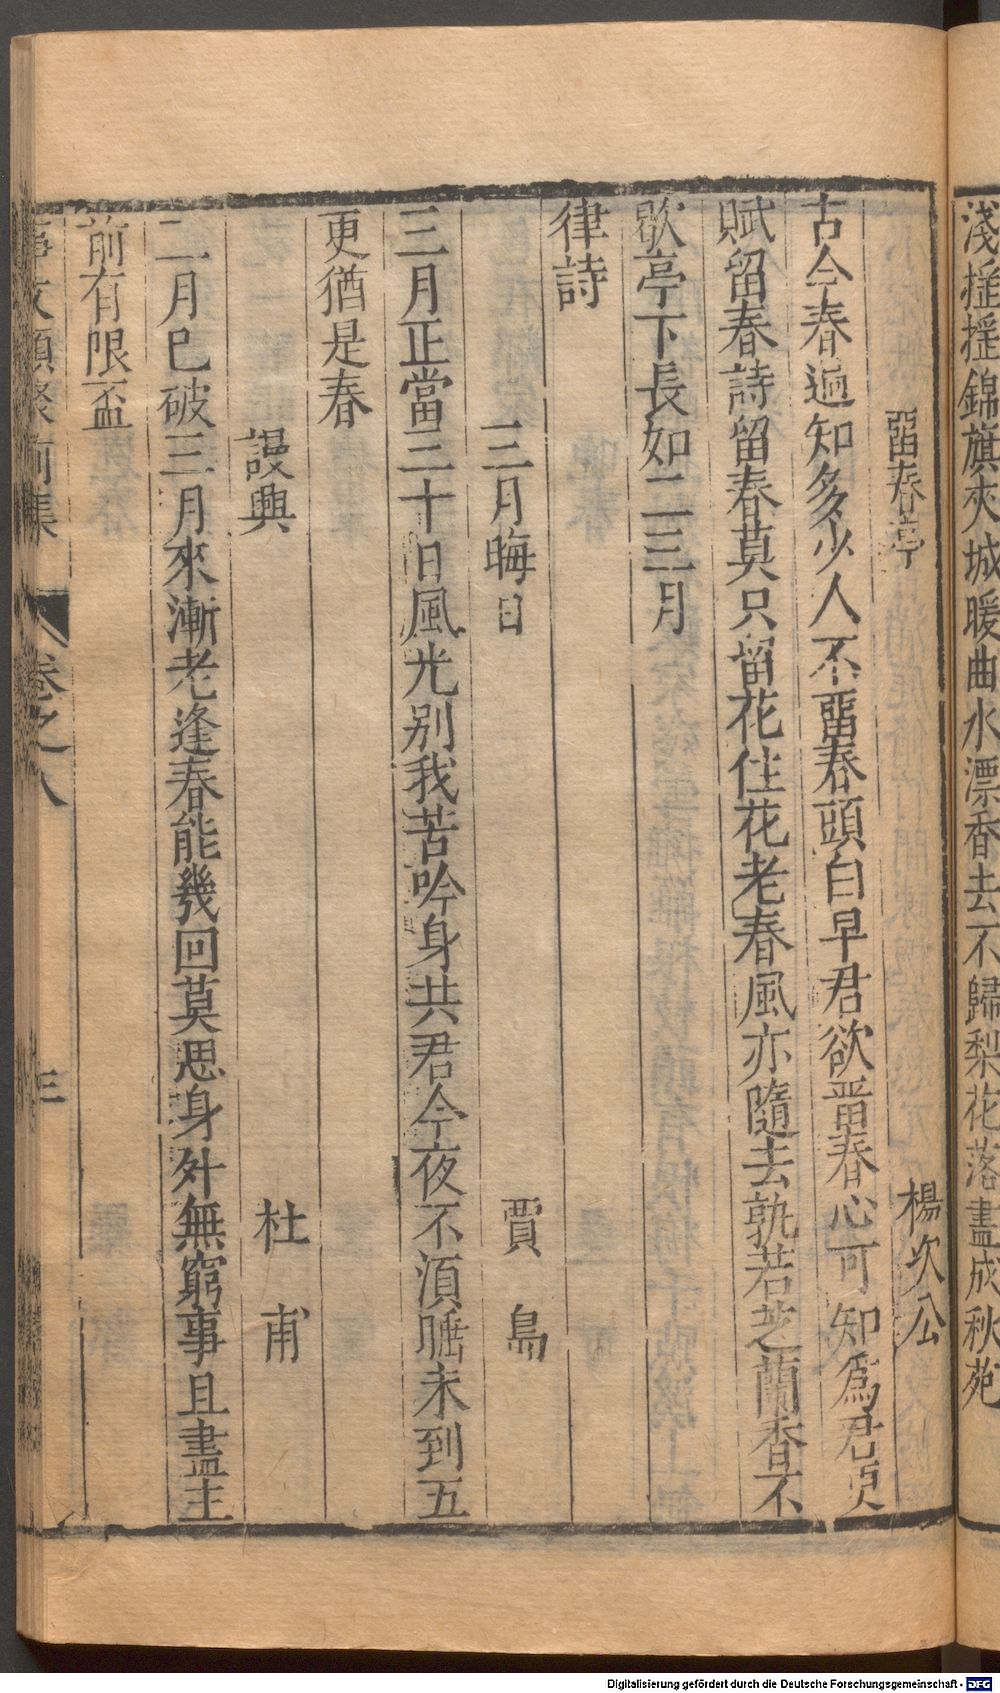 淺揺揺錦旗夾城暖曲水漂香去不歸梨花落盡成秋苑
畱春亭　楊次公
古今春過知多少人不畱春頭白早君欲畱春心可知爲君更
賦留春詩留春莫只留花住花老春風亦隨去孰若芝蘭香不
歇亭下長如二三月
律詩
三月晦日　賈島
三月正當三十日風光别我苦吟身共君今夜不須睡未到五
更猶是春
謾興　杜甫
二月已破三月來漸老逢春能幾回莫思身外無窮事且盡生
前有限盃
事文類聚前集　卷之八　三
Digitalisierung gefördert durch die Deutsche Forschungsgemeinschaft - DFG